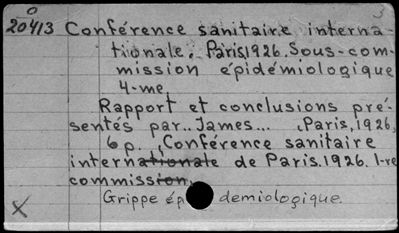 20413 Conférence sanitaire interna-
tionale. Paris, 1926. Sous-com-
mission épidémiologique
4-me.
Rapport et conclusions pré-
sentés par.. James... , Paris, 1926,
6 p. , Conférence sanitaire
internationale de Paris. 1926. 1-re
commission,
Grippe ép demiologique.
X